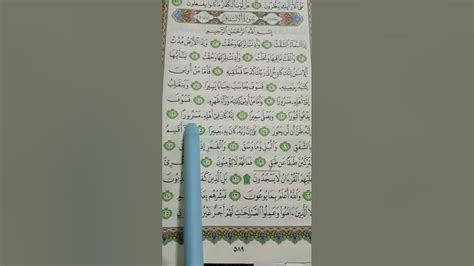 عَلَى الْأَرَائِكِ يَنظُرُونَ هَلْ ثُوِّبَ الْكُفَّارُ مَا كَانُوا يَفْعَلُونَ
سُورَةُ الِانشِقَاقِ
بِسْمِ اللَّهِ الرَّحْمَٰنِ الرَّحِيمِ
إِذَا السَّمَاءُ انشَقَّتْ ١ وَأَذِنَتْ لِرَبِّهَا وَحُقَّتْ ٢ وَإِذَا الْأَرْضُ مُدَّتْ
٣ وَأَلْقَتْ مَا فِيهَا وَتَخَلَّتْ ٤ وَأَذِنَتْ لِرَبِّهَا وَحُقَّتْ ٥ يَا أَيُّهَا
الْإِنسَانُ إِنَّكَ كَادِحٌ إِلَىٰ رَبِّكَ كَدْحًا فَمُلَاقِيهِ ٦ فَأَمَّا مَنْ أُوتِيَ
كِتَابَهُ بِيَمِينِهِ ٧ فَسَوْفَ يُحَاسَبُ حِسَابًا يَسِيرًا ٨ وَيَنقَلِبُ
إِلَىٰ أَهْلِهِ مَسْرُورًا ٩ وَأَمَّا مَنْ أُوتِيَ كِتَابَهُ وَرَاءَ ظَهْرِهِ ١٠ فَسَوْفَ
يَدْعُو ثُبُورًا ١١ وَيَصْلَىٰ سَعِيرًا ١٢ إِنَّهُ كَانَ فِي أَهْلِهِ مَسْرُورًا ١٣
إِنَّهُ ظَنَّ أَن لَّن يَحُورَ ١٤ بَلَىٰ إِنَّ رَبَّهُ كَانَ بِهِ بَصِيرًا ١٥ أُقْسِمُ
بِالشَّفَقِ ١٦ وَاللَّيْلِ وَمَا وَسَقَ ١٧ وَالْقَمَرِ إِذَا اتَّسَقَ ١٨
لَتَرْكَبُنَّ طَبَقًا عَن طَبَقٍ ١٩ فَمَا لَهُمْ لَا يُؤْمِنُونَ ٢٠ قُرِئَ
عَلَيْهِمُ الْقُرْآنُ لَا يَسْجُدُونَ ٢١ بَلِ الَّذِينَ
٢٢ وَاللَّهُ أَعْلَمُ بِمَا يُوعُونَ ٢٣ فَبَشِّرْهُم
إِلَّا الَّذِينَ آمَنُوا وَعَمِلُوا الصَّالِحَاتِ لَهُمْ أَجْرٌ غَيْرُ
٥٨٩